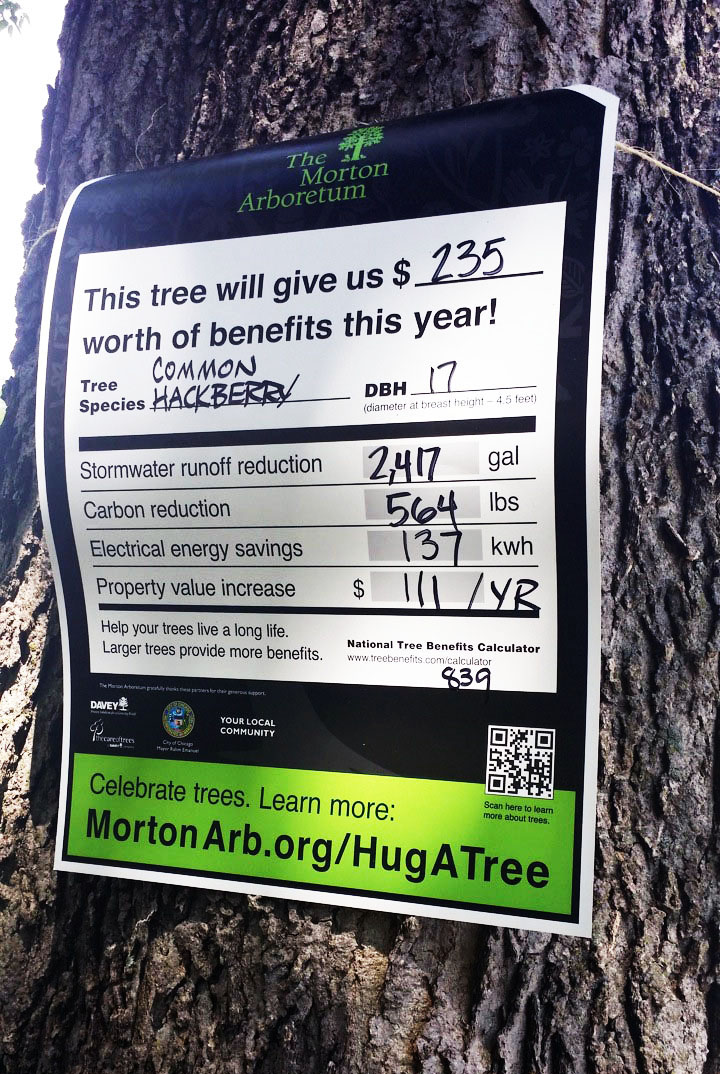 The
Morton
Arboretum
This tree will give us $ 235
worth of benefits this year!
Tree Species COMMON HACKBERRY
DBH 17
(diameter at breast height – 4.5 feet)
Stormwater runoff reduction 2,417 gal
Carbon reduction 564 lbs
Electrical energy savings 137 kwh
Property value increase $ 111 /YR
Help your trees live a long life.
Larger trees provide more benefits.
National Tree Benefits Calculator
www.treebenefits.com/calculator
839
The Morton Arboretum gratefully thanks these partners for their generous support.
DAVEY
thecareoftrees
City of Chicago
Mayor Rahm Emanuel
YOUR LOCAL
COMMUNITY
Scan here to learn
more about trees.
Celebrate trees. Learn more:
MortonArb.org/HugATree